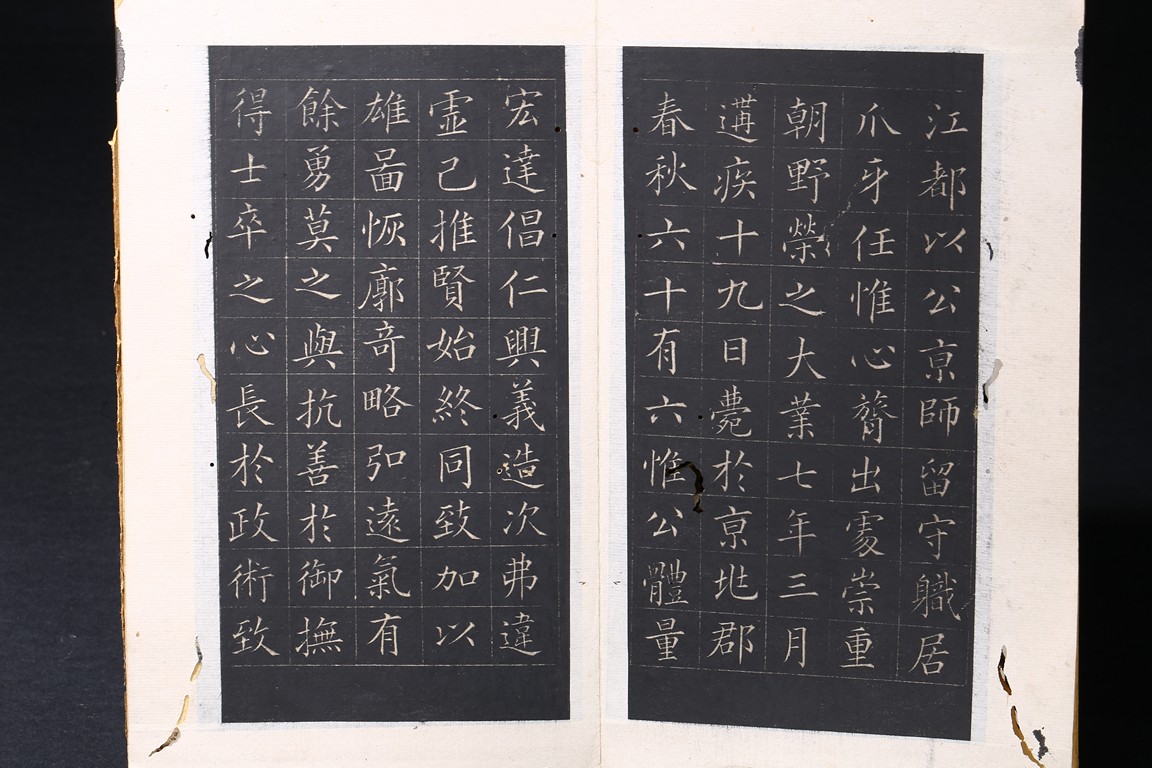 江都以公京師留守職居
爪牙任惟心膂出處崇重
朝野榮之大業七年三月
遘疾十九日薨於京兆郡
春秋六十有六惟公體量
宏達倡仁興義造次弗違
虛己推賢始終同致加以
雄啚恢廓竒略弘遠氣有
餘勇莫之與抗善於御撫
得士卒之心長於政術致